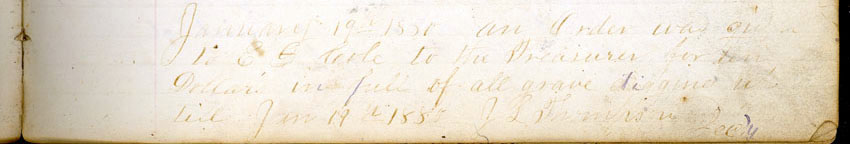 January 19th 1880 an Order was
to E G to the Treasurer for ten
Dollars in full of all grave digging un
til Jan 19th 1880 J L
Secy